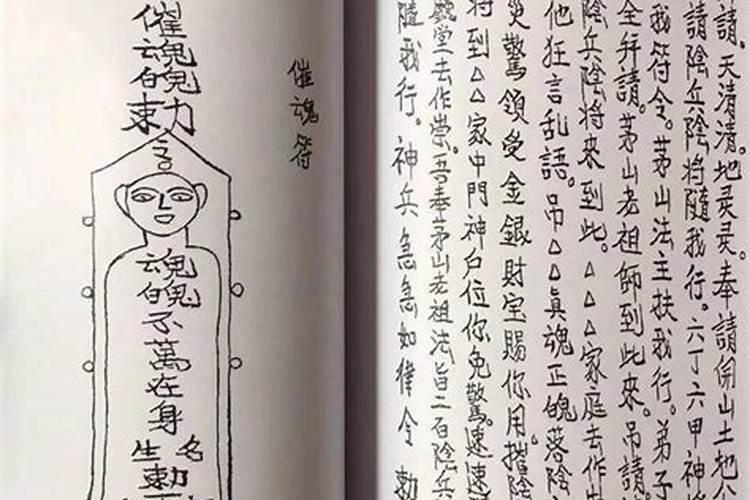 請。天清清。地灵灵。奉請開山土地公
請陰兵陰將隨我行。六丁六甲神將
我符令。茅山法主扶我行。弟子
全拜請。茅山老祖師到此來。吊請
陰兵陰將來到此。△△△家庭去作
他狂言乱語。吊△△真魂正魄落陰
災驚領受金銀財宝賜你用。摧陰
将到△△家中門神户位你免驚。速速
堂去作祟。吾奉茅山老祖法旨二百陰兵
隨我行。神兵急急如律令 勅
催魂符
催魂魄勅
魂魄不萬在身
名生
勅